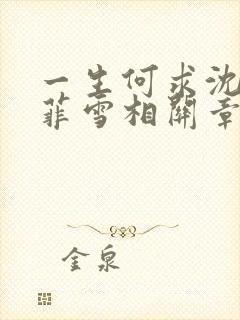 一生何求沈
菲雪相關章
金泉